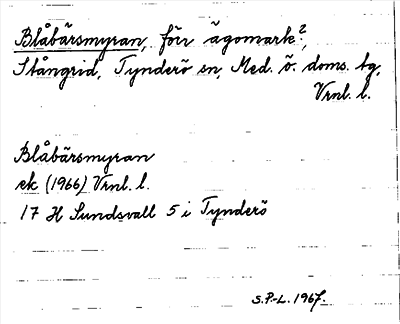 Blåbärsmyran, förr ägomark?,
Stångrid, Tynderö sn, Med. ö. doms. tg,
Vrnl. l.
Blåbärsmyran
ek (1966) Vrnl. l.
17 H Sundsvall 5 i Tynderö
S.P.-L. 1967.